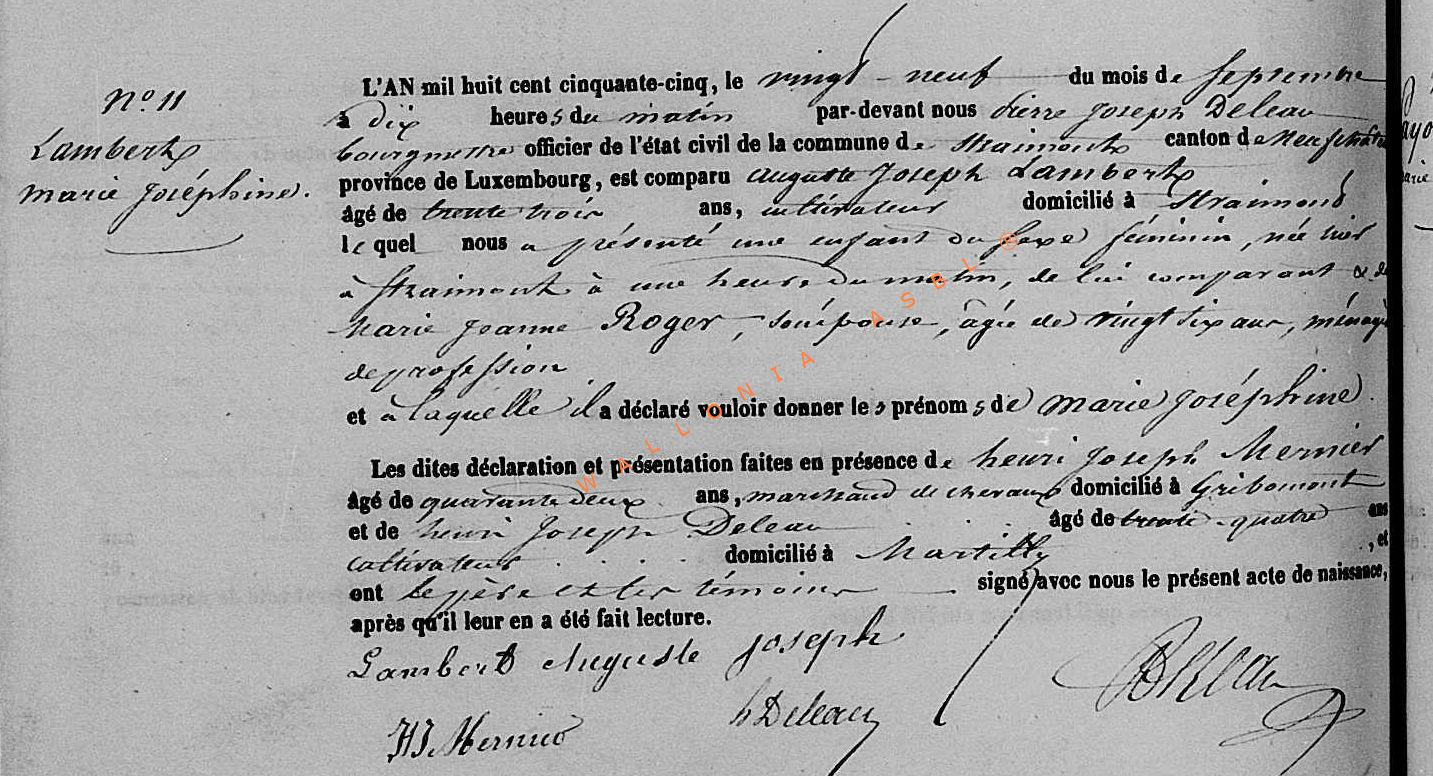 N° 11
Lambert
Marie Joséphine.
L'AN mil huit cent cinquante-cinq, le vingt-neuf du mois de Septembre
à dix heures du matin par-devant nous Pierre Joseph Deleau
bourgmestre officier de l'état civil de la commune de Straimont canton de Neufchâteau
province de Luxembourg, est comparu Auguste Joseph Lambert
âgé de trente trois ans, cultivateur domicilié à Straimont
lequel nous a présenté une enfant du sexe féminin, née hier
à Straimont à une heure du matin, de lui comparant & de
Marie Jeanne Roger, son épouse, âgée de vingt six ans, ménagè
de profession
et à laquelle il a déclaré vouloir donner les prénoms de Marie Joséphine.
Les dites déclaration et présentation faites en présence de henri Joseph Mernier
âgé de quarante deux ans, marchand de chevaux domicilié à Gribomont
et de henri Joseph Deleau âgé de trente-quatre ans
cultivateur domicilié à Martilly , et
ont le père et les témoins signé avec nous le présent acte de naissance,
après qu'il leur en a été fait lecture.
Lambert Auguste Joseph
Deleau
h Deleau
HJ Mernier
WALLONIA ASBL ©